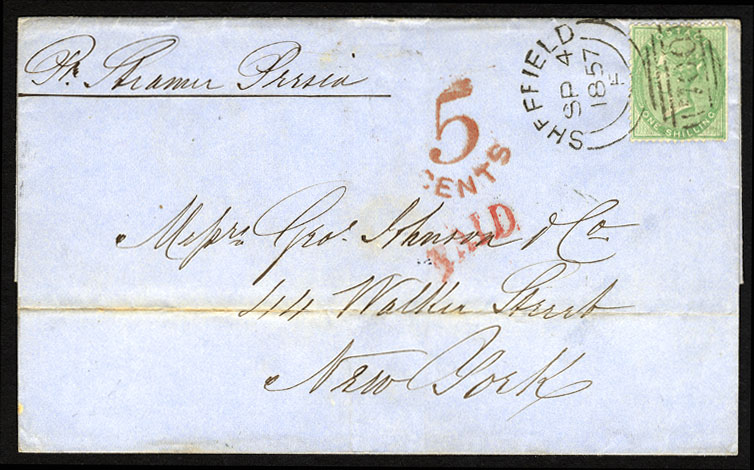 Pr. Steamer Persia
SHEFFIELD
SP 4
1857
E
ONE SHILLING
5
CENTS
PAID
Messrs Geo. Johnson & Co
44 Walker Street
New York